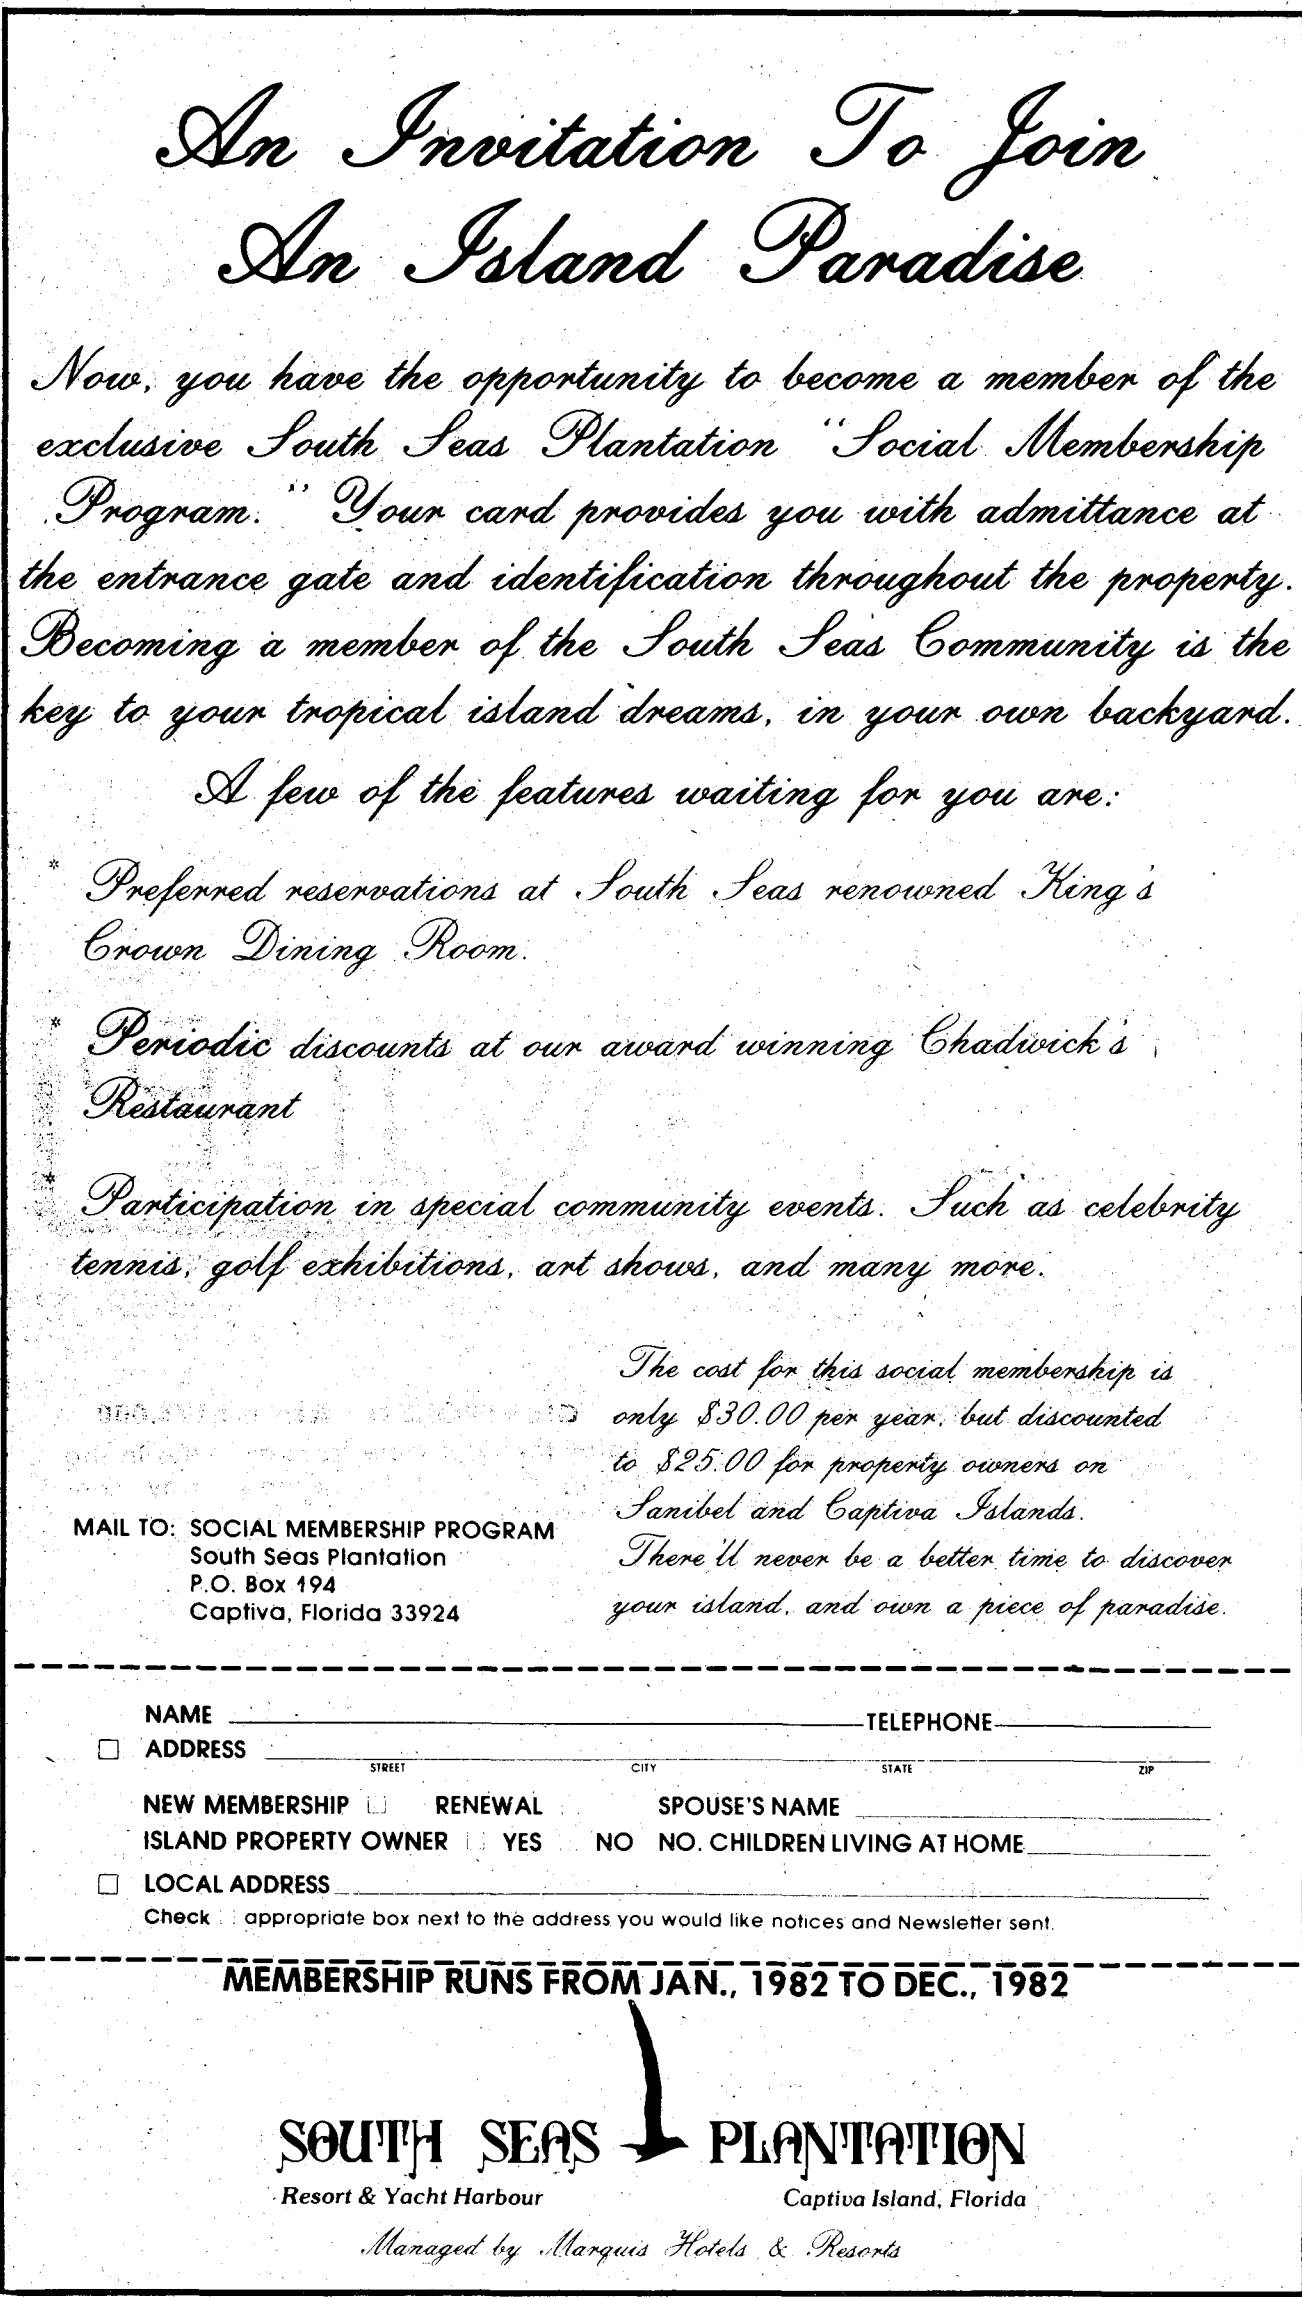 An Invitation To Join
An Island Paradise
Now, you have the opportunity to become a member of the
exclusive South Seas Plantation "Social Membership
Program." Your card provides you with admittance at
the entrance gate and identification throughout the property.
Becoming a member of the South Seas Community is the
key to your tropical island dreams, in your own backyard.
A few of the features waiting for you are:
* Preferred reservations at South Seas renowned King's
Crown Dining Room.
* Periodic discounts at our award winning Chadwick's
Restaurant
* Participation in special community events. Such as celebrity
tennis, golf exhibitions, art shows, and many more.
The cost for this social membership is
only $30.00 per year, but discounted
to $25.00 for property owners on
Sanibel and Captiva Islands.
There'll never be a better time to discover
your island, and own a piece of paradise.
MAIL TO: SOCIAL MEMBERSHIP PROGRAM
South Seas Plantation
P.O. Box 194
Captiva, Florida 33924
NAME TELEPHONE
ADDRESS
STREET CITY STATE ZIP
NEW MEMBERSHIP RENEWAL SPOUSE'S NAME
ISLAND PROPERTY OWNER YES NO NO. CHILDREN LIVING AT HOME
LOCAL ADDRESS
Check appropriate box next to the address you would like notices and Newsletter sent.
MEMBERSHIP RUNS FROM JAN., 1982 TO DEC., 1982
SOUTH SEAS PLANTATION
Resort & Yacht Harbour Captiva Island, Florida
Managed by Marquis Hotels & Resorts